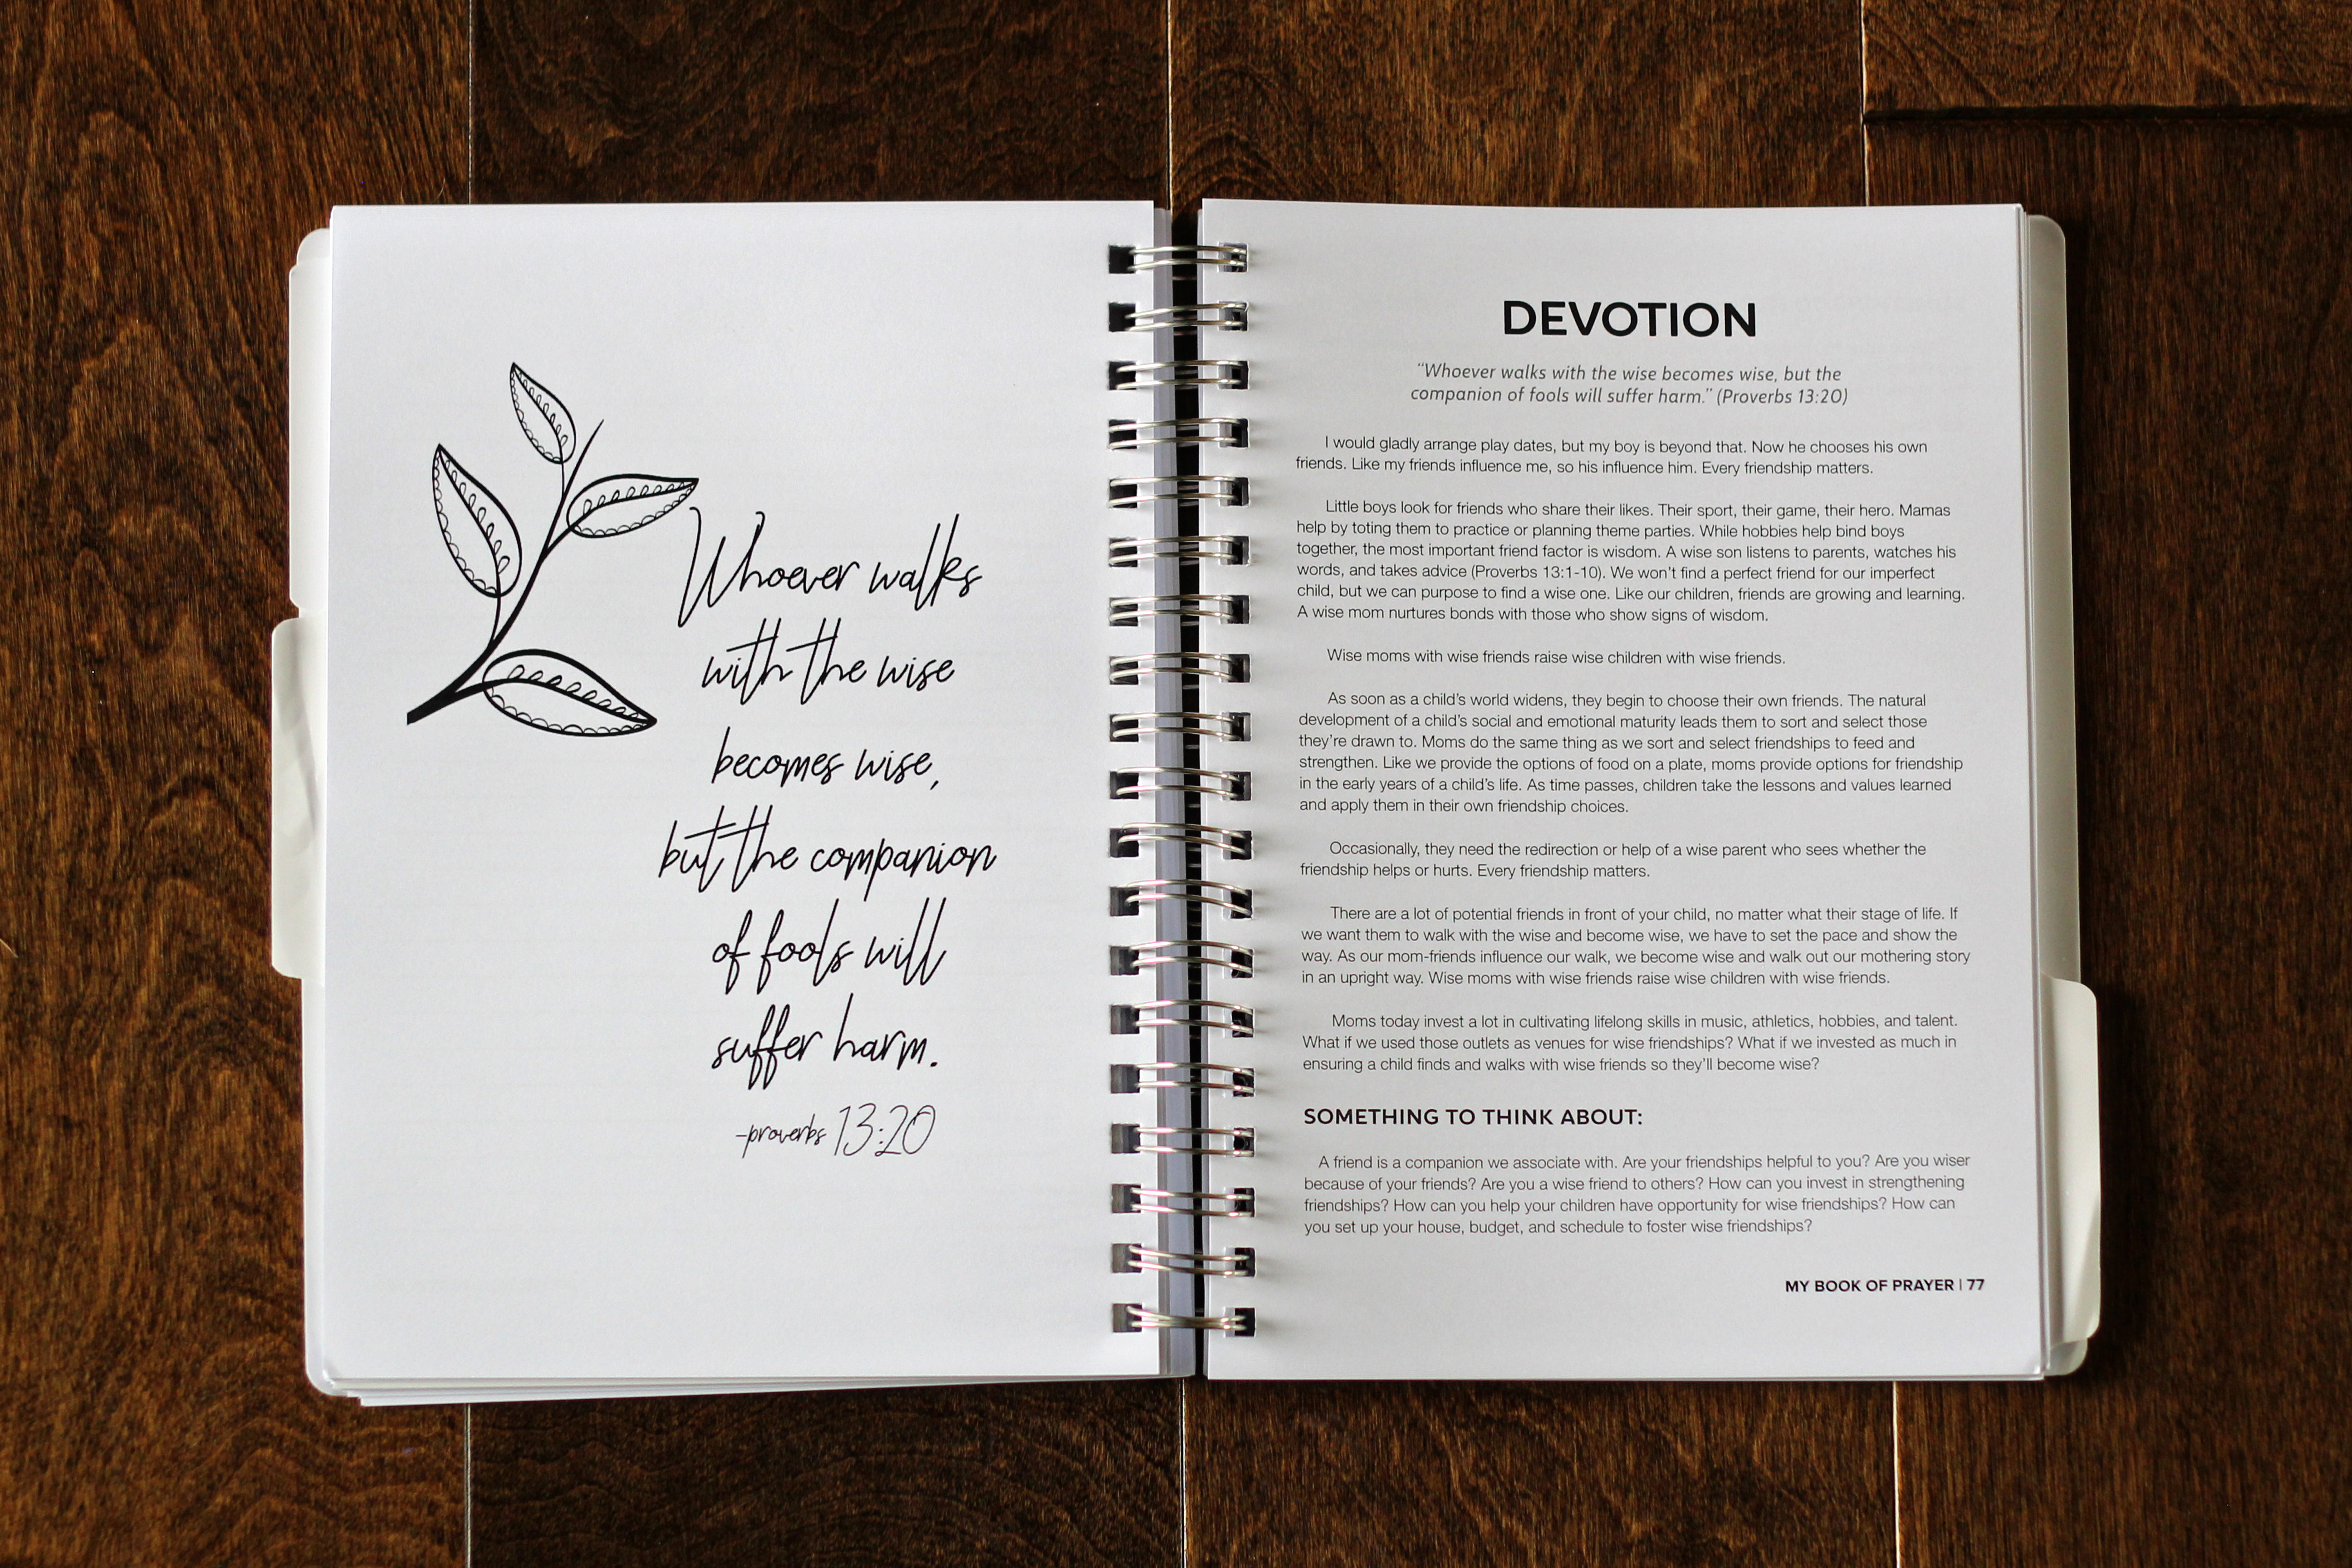 Whoever walks
with the wise
becomes wise,
but the companion
of fools will
suffer harm.
-proverbs 13:20
DEVOTION
"Whoever walks with the wise becomes wise, but the
companion of fools will suffer harm." (Proverbs 13:20)
I would gladly arrange play dates, but my boy is beyond that. Now he chooses his own
friends. Like my friends influence me, so his influence him. Every friendship matters.
Little boys look for friends who share their likes. Their sport, their game, their hero. Mamas
help by toting them to practice or planning theme parties. While hobbies help bind boys
together, the most important friend factor is wisdom. A wise son listens to parents, watches his
words, and takes advice (Proverbs 13:1-10). We won't find a perfect friend for our imperfect
child, but we can purpose to find a wise one. Like our children, friends are growing and learning.
A wise mom nurtures bonds with those who show signs of wisdom.
Wise moms with wise friends raise wise children with wise friends.
As soon as a child's world widens, they begin to choose their own friends. The natural
development of a child's social and emotional maturity leads them to sort and select those
they're drawn to. Moms do the same thing as we sort and select friendships to feed and
strengthen. Like we provide the options of food on a plate, moms provide options for friendship
in the early years of a child's life. As time passes, children take the lessons and values learned
and apply them in their own friendship choices.
Occasionally, they need the redirection or help of a wise parent who sees whether the
friendship helps or hurts. Every friendship matters.
There are a lot of potential friends in front of your child, no matter what their stage of life. If
we want them to walk with the wise and become wise, we have to set the pace and show the
way. As our mom-friends influence our walk, we become wise and walk out our mothering story
in an upright way. Wise moms with wise friends raise wise children with wise friends.
Moms today invest a lot in cultivating lifelong skills in music, athletics, hobbies, and talent.
What if we used those outlets as venues for wise friendships? What if we invested as much in
ensuring a child finds and walks with wise friends so they'll become wise?
SOMETHING TO THINK ABOUT:
A friend is a companion we associate with. Are your friendships helpful to you? Are you wiser
because of your friends? Are you a wise friend to others? How can you invest in strengthening
friendships? How can you help your children have opportunity for wise friendships? How can
you set up your house, budget, and schedule to foster wise friendships?
MY BOOK OF PRAYER | 77